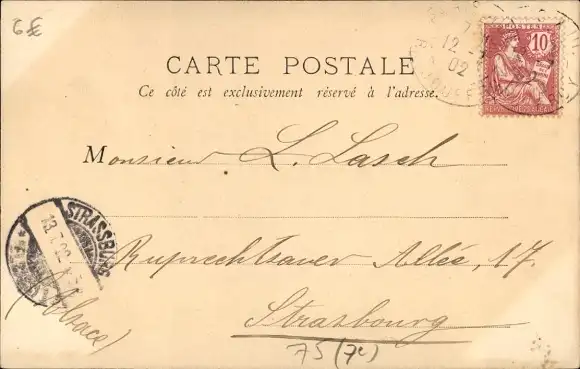 6 €
POSTES
10
12
02
CARTE POSTALE
Ce côté est exclusivement réservé à l'adresse.
Monsieur L. Lasch
STRASSBURG
13.
Ruprechtsauer Allée, 17.
(Alsace)
Strasbourg
75 (7e)